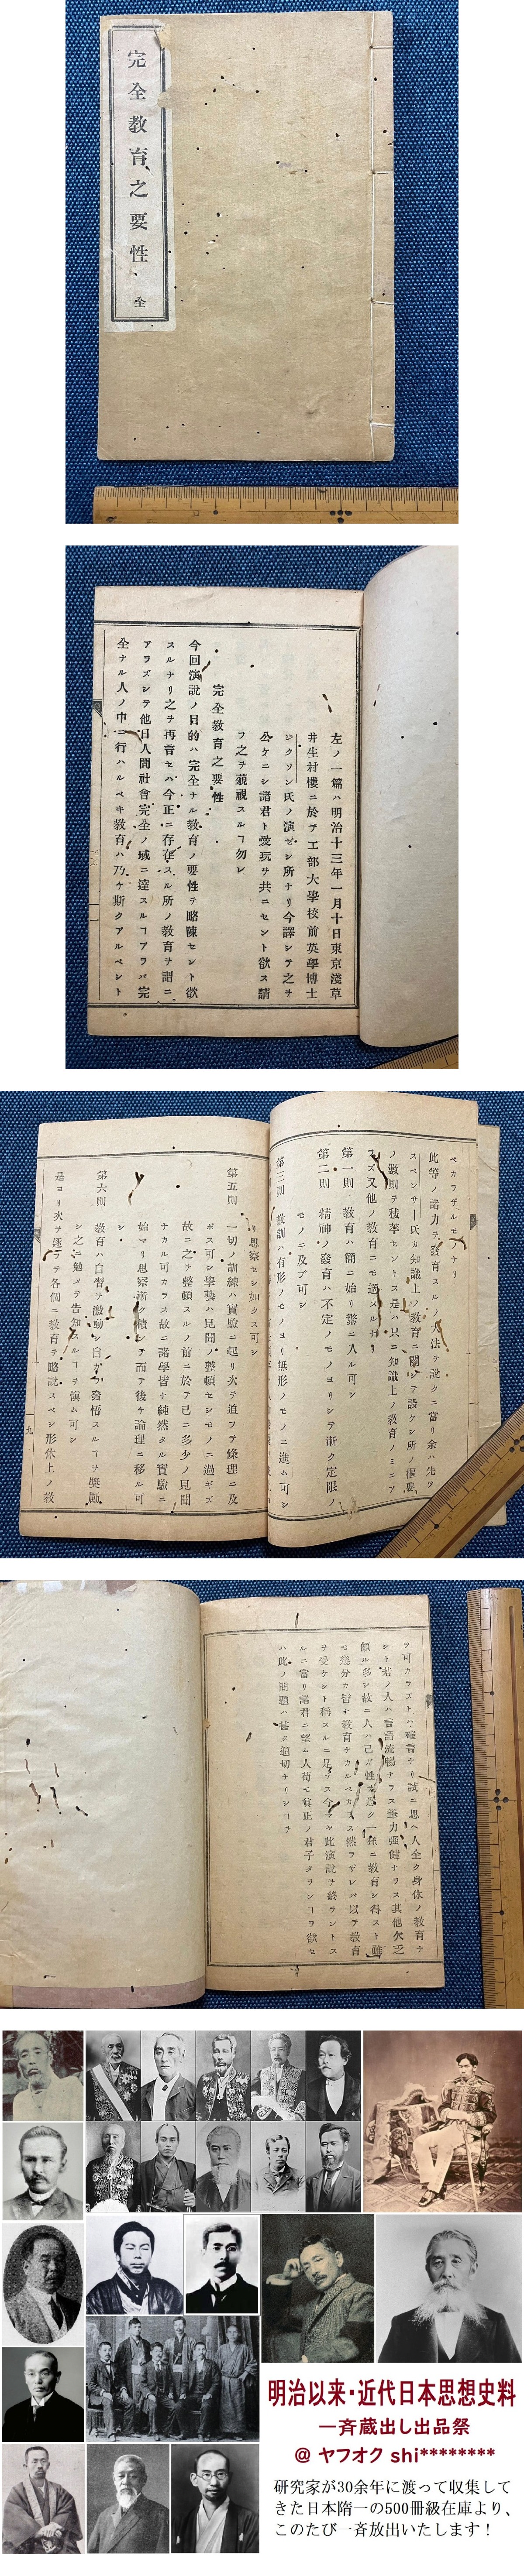 完全教育之要性
全
左ノ一篇ハ明治十三年一月十日東京淺草
井生村樓ニ於テ工部大學校前英學博士
ジクソン氏ノ演ゼシ所ナリ今譯シテ之ヲ
公ケニシ諸君ト愛玩ヲ共ニセント欲ス請
フ之ヲ蔑視スルヿ勿レ
完全教育之要性
今回演説ノ目的ハ完全ナル教育ノ要性ヲ略陳セント欲
スルナリ之ヲ再言セハ今正ニ存在スル所ノ教育ヲ謂ニ
アラズシテ他日人間社會完全ノ域ニ達スルヿアラバ完
全ナル人ノ中ニ行ハルベキ教育ハ乃チ斯クアルベシト
ベカラザルモノナリ
此等ノ諸力ヲ發育スルノ方法ヲ說クニ當リ余ハ先ツ
スペンサー氏カ知識上ノ教育ニ關シテ設ケシ所ノ樞要
ノ數則ヲ抜萃セントス是ハ只ニ知識上ノ教育ノミニア
ラズ又他ノ教育ニモ適スルナリ
第一則 教育ハ簡ニ始リ繁ニ入ル可シ
第二則 精神ノ發育ハ不定ノモノヨリシテ漸ク定限ノ
モノニ及ブ可シ
第三則 教訓ハ有形ノモノヨリ無形ノモノニ進ム可シ
リ思察セシ如クス可シ
第五則 一切ノ訓練ハ實驗ニ起リ次ヲ追フテ條理ニ及
ボス可シ學藝ハ見聞ノ整頓セシモノニ過ギズ
故ニ之ヲ整頓スルノ前ニ於テ己ニ多少ノ見聞
ナカル可カラス故ニ諸學皆ナ純然タル實驗ニ
始マリ思察漸ク積ンデ而テ後チ論理ニ移ル可
シ
第六則 教育ハ自習ヲ激勵シ自カラ發悟スルヿヲ奨勵
シ之ニ勉メテ告知スルヿヲ愼ム可シ
是ヨリ次ヲ逐フテ各個ニ教育ヲ略說スベシ形体上ノ教
九
ヲ可カラズトハ確言ナリ試ニ思ヘ人全ク身体ノ教育ナ
シト若ノ人ハ言語流暢ナラス筆力强健ナラス其他欠乏
頗ル多シ故ニ人ハ己ガ性ヲ悉ク一樣ニ教育シ得スト雖
モ幾分カ皆ナ教育ナカルベカラス然ラザレバ以テ教育
ヲ受ケシト稱スルニ足ラス今ヤ此演說ヲ終ラントス
ルニ當リ諸君ニ望ム人苟モ眞正ノ君子タランヿヲ欲セ
ハ此ノ問題ハ甚タ適切ナリシヿヲ
明治以来・近代日本思想史料
一斉蔵出し出品祭
@ ヤフオク shi********
研究家が30余年に渡って収集して
きた日本随一の500冊級在庫より、
このたび一斉放出いたします！